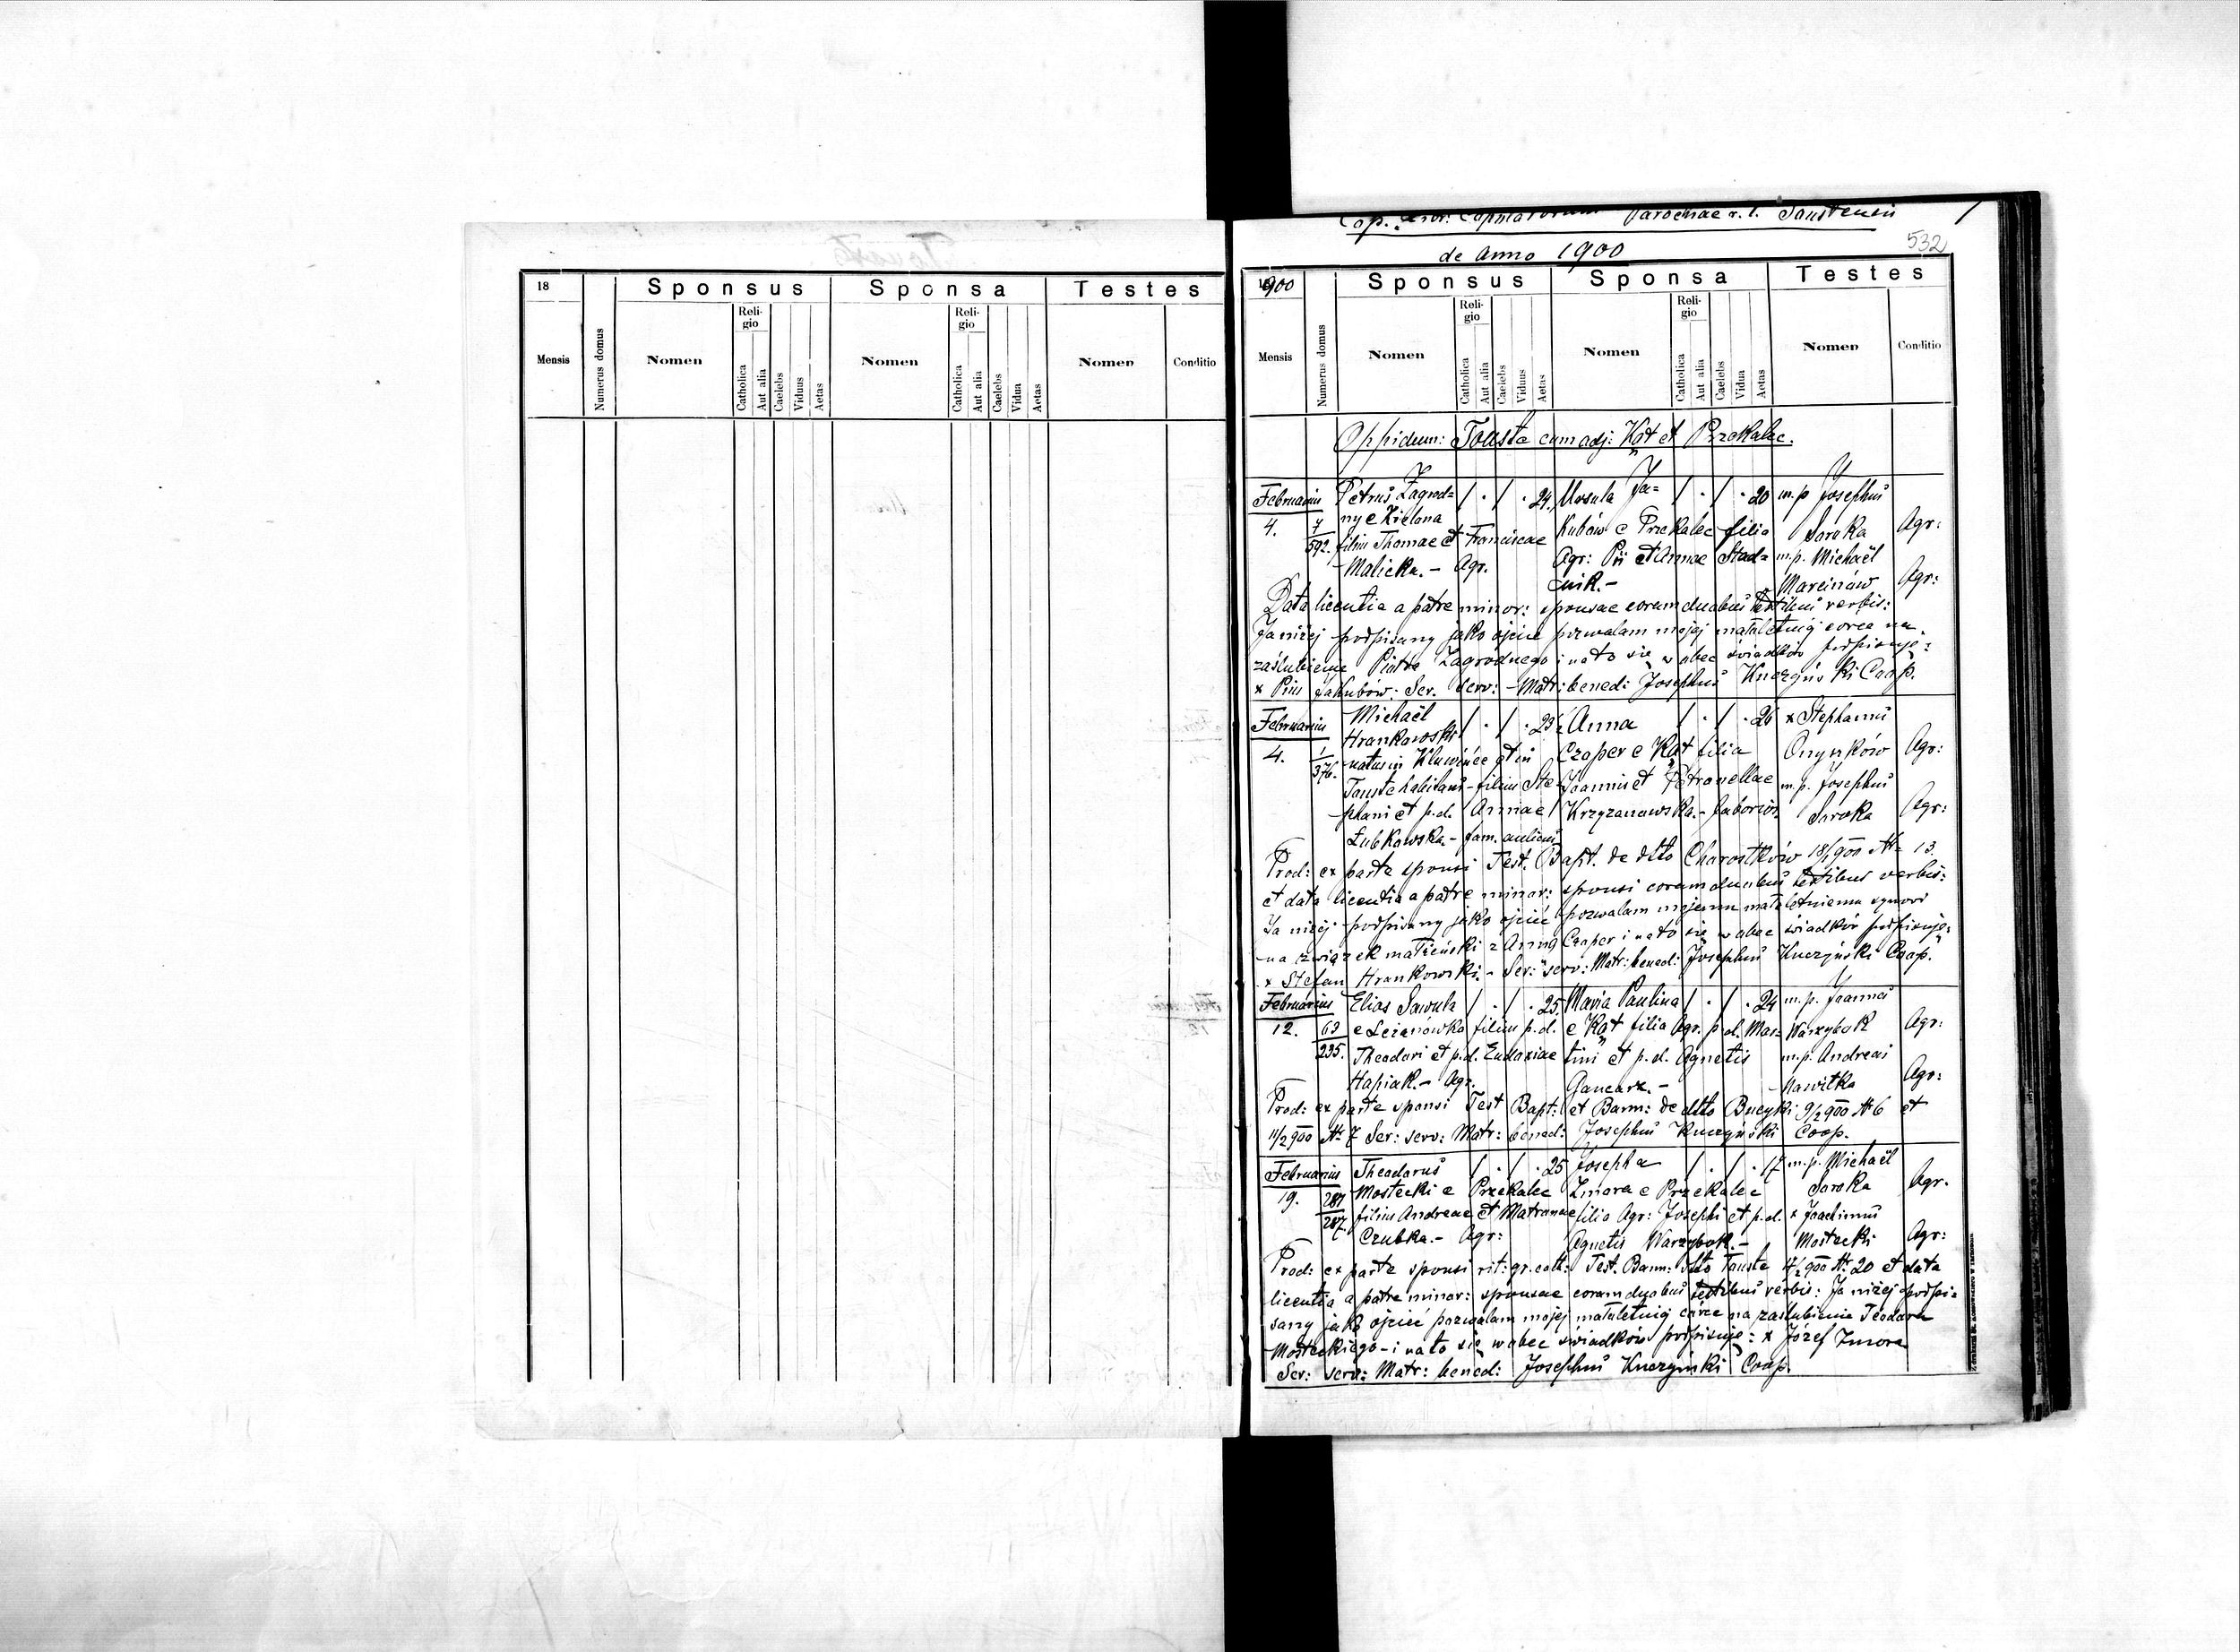 Cop. Libr. Copulatorum Parochiae r. l. Toustensis 1
de Anno 1900 532
18 Sponsus Sponsa Testes
Mensis Numerus domus Nomen Religio Catholica Aut alia Caelebs Viduus Aetas Nomen Religio Catholica Aut alia Caelebs Vidua Aetas Nomen Conditio
1900 Sponsus Sponsa Testes
Mensis Numerus domus Nomen Religio Catholica Aut alia Caelebs Viduus Aetas Nomen Religio Catholica Aut alia Caelebs Vidua Aetas Nomen Conditio
Oppidum: Touste cum adj: Kąt et Przekalec.
Februarius Petrus Zagrod= / . / . 24. Ursula Ja= / . / . 20 m.p Josephus
4. 7/592. ny e Zielona Kubów e Przekalec filia Soroka Agr:
filius Thomae et Franciscae Agr: Pii et Annae Stad= m.p. Michaël
Malicka.- Agr. nik.- Marcinów Agr:
Data licentia a patre minor: sponsae coram duobus testibus verbis:
Ja niżej podpisany jako ojciec pozwalam mojej małoletniej córce na
zaślubienie Piotra Zagrodnego i na to się w obec świadków podpisuje:
x Pius Jakubów: Ser. serv: - Matr: bened: Josephus Kuczyński Coop.
Februarius Michaël / . / . 23½ Anna / . / . 26 x Stephanus
4. 1/376. Hrankowski Czaper e Kąt filia Onynków Agr:
natus in Kluwińce et in Joannis et Petronellae m.p. Josephus
Touste habitans - filius Ste= Krzyzanowska.- laborios. Soroka Agr:
phani et p.d. Annae
Łubkowska.- fam. aulicus
Prod: ex parte sponsi Test. Bapt. de dtto Chorostków 18/1 900 № 13.
et data licentia a patre minor: sponsi coram duobus testibus verbis:
Ja niżej podpisany jako ojciec pozwalam mojemu małoletniemu synowi
na związek małżeński z Anną Czaper i na to się w obec świadków podpisuje:
x Stefan Hrankowski.- Ser: serv: Matr: bened: Josephus Kuczyński Coop.
Februarius Elias Sawula / . / . 25. Maria Paulina / . / . 24 m.p. Joannes
12. 63/235. e Leżanówka filius p.d. e Kąt filia Agr. p.d. Mar= Warzybok Agr:
Theodori et p.d. Eudoxiae tini et p.d. Agnetis m.p. Andreas
Hapiak.- Agr. Gancarz.- Nawitka Agr:
Prod: ex parte sponsi Test Bapt: et Bann: de dtto Bucyki 9/2 900 № 6 et
11/2 900 № 7 Ser: serv: Matr: bened: Josephus Kuczyński Coop.
Februarius Theodorus / . / . 25 Josepha / . / . 17 m.p. Michaël
19. 287/287. Mostecki e Przekalec Zmora e Przekalec Soroka Agr.
filius Andreae et Matronae filia Agr: Josephi et p.d. x Joachimus
Czubka.- Agr: Agnetis Warzybok.- Mostecki Agr:
Prod: ex parte sponsi rit: gr. cath: Test. Bann: dtto Touste 17/2 900 № 20 et data
licentia a patre minor: sponsae coram duobus testibus verbis: Ja niżej podpi=
sany jako ojciec pozwalam mojej małoletniej córce na zaślubienie Teodora
Mosteckiego - i na to się w obec świadków podpisuje: x Józef Zmora
Ser: serv: Matr: bened: Josephus Kuczyński Coop.